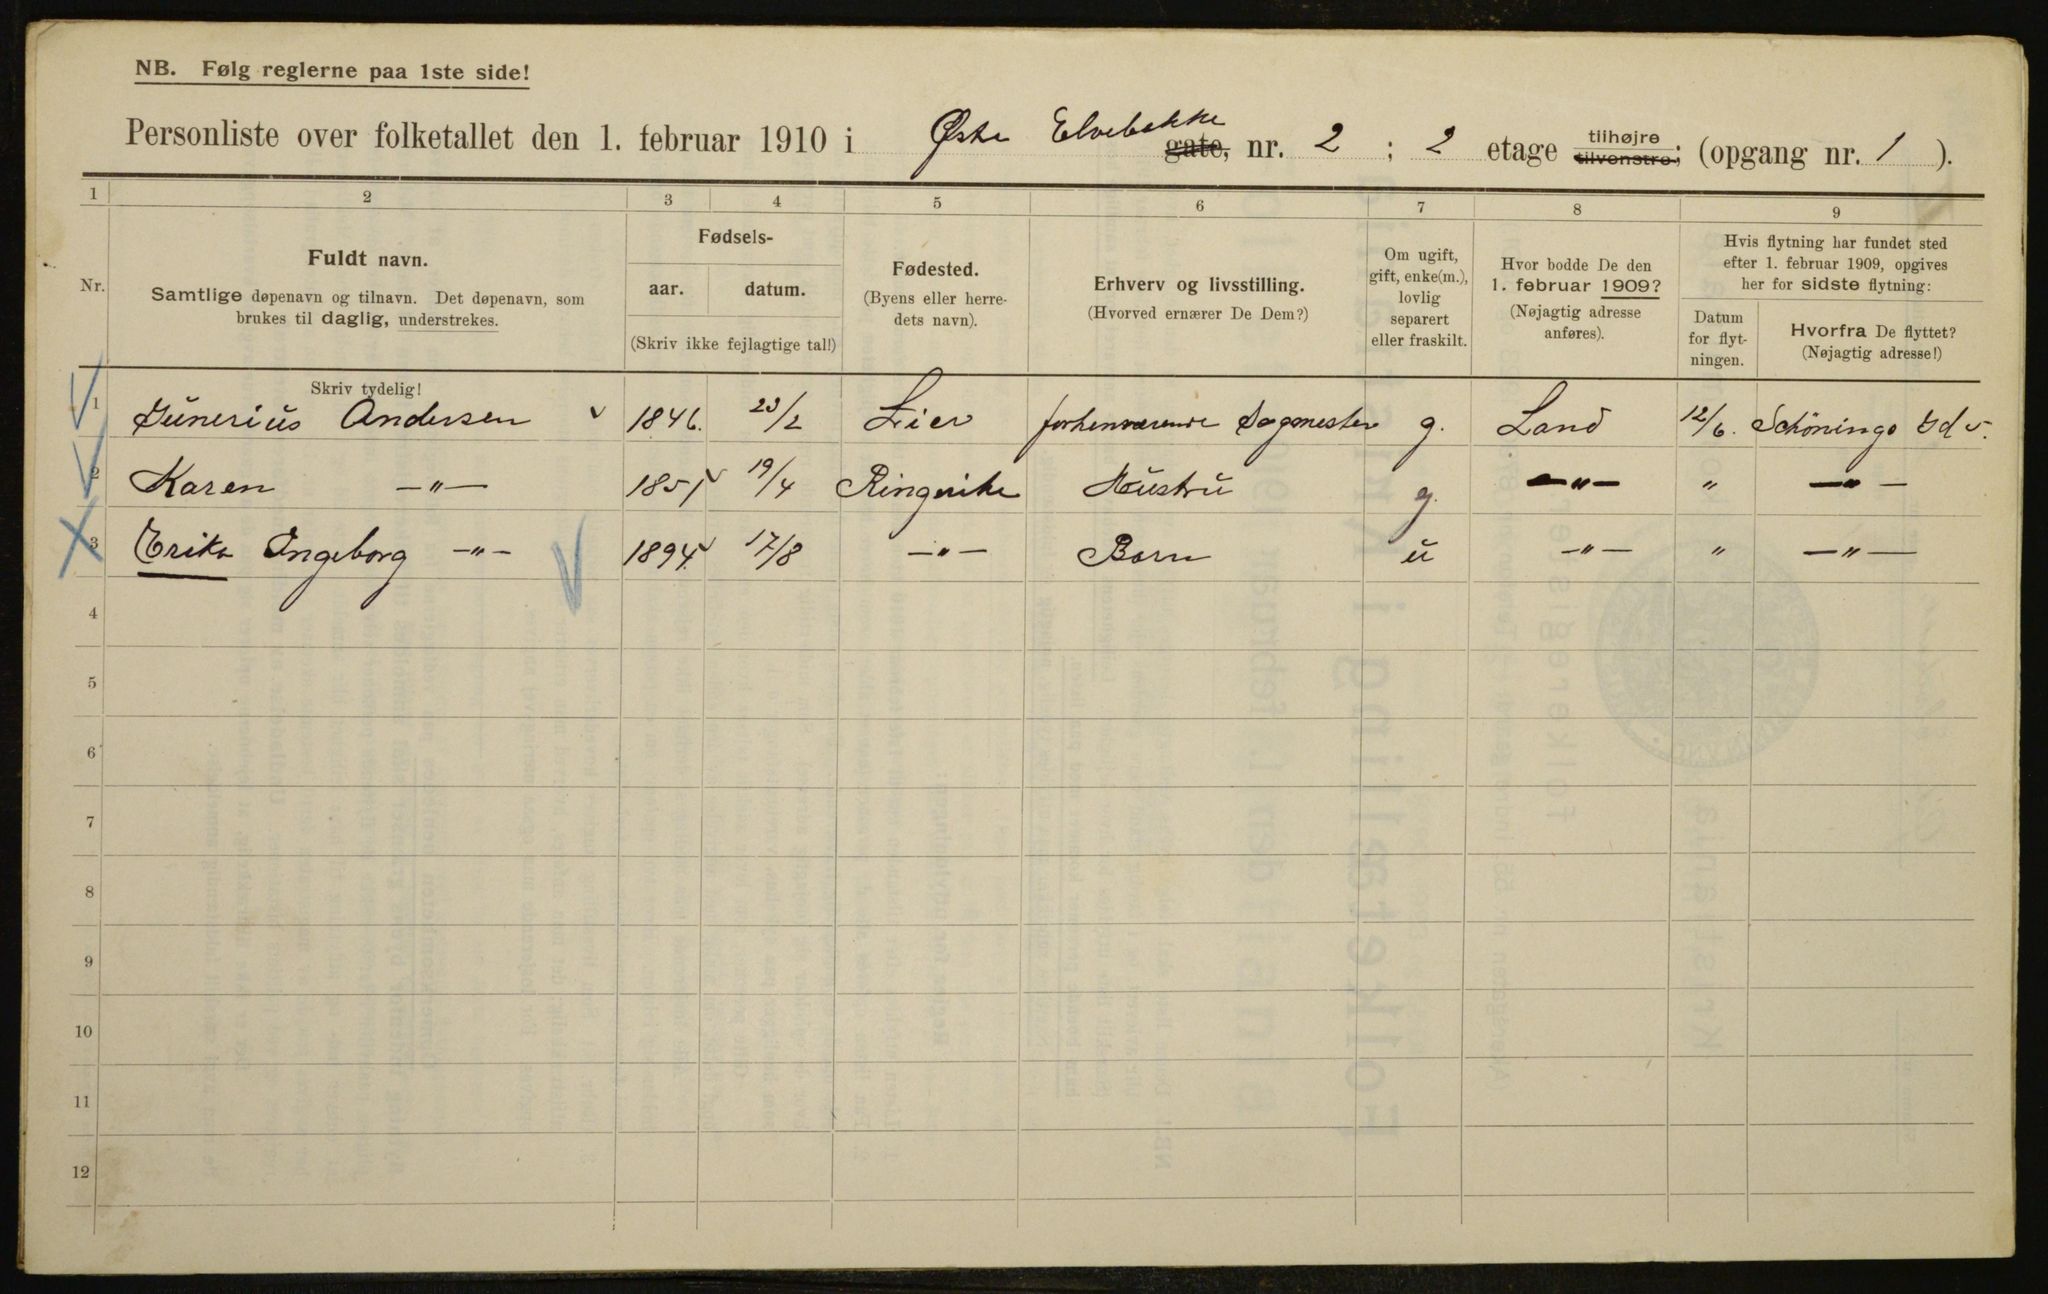 NB. Følg reglerne paa 1ste side!
Personliste over folketallet den 1. februar 1910 i Østre Elvebakke gate, nr. 2 ; 2 etage tilhøjre tilvenstre; (opgang nr. 1 ).
1 2 3 4 5 6 7 8 9
Nr.
Fuldt navn.
Samtlige døpenavn og tilnavn. Det døpenavn, som
brukes til daglig, understrekes.
Fødsels-
aar. datum.
(Skriv ikke fejlagtige tal!)
Fødested.
(Byens eller herre-
dets navn).
Erhverv og livsstilling.
(Hvorved ernærer De Dem?)
Om ugift,
gift, enke(m.),
lovlig
separert
eller fraskilt.
Hvor bodde De den
1. februar 1909?
(Nøjagtig adresse
anføres).
Hvis flytning har fundet sted
efter 1. februar 1909, opgives
her for sidste flytning:
Datum
for flyt-
ningen.
Hvorfra De flyttet?
(Nøjagtig adresse!)
Skriv tydelig!
1 Junerius Andersen 1846. 23/2 Lier forhenværende Sagmester g. Land 12/6. Schönings gd 5.
2 Karen —"— 1851 19/4 Ringerike Hustru g. —"— " —"—
3 Erika Ingeborg —"— 1894 17/8 —"— Barn u —"— " —"—
4
5
6
7
8
9
10
11
12